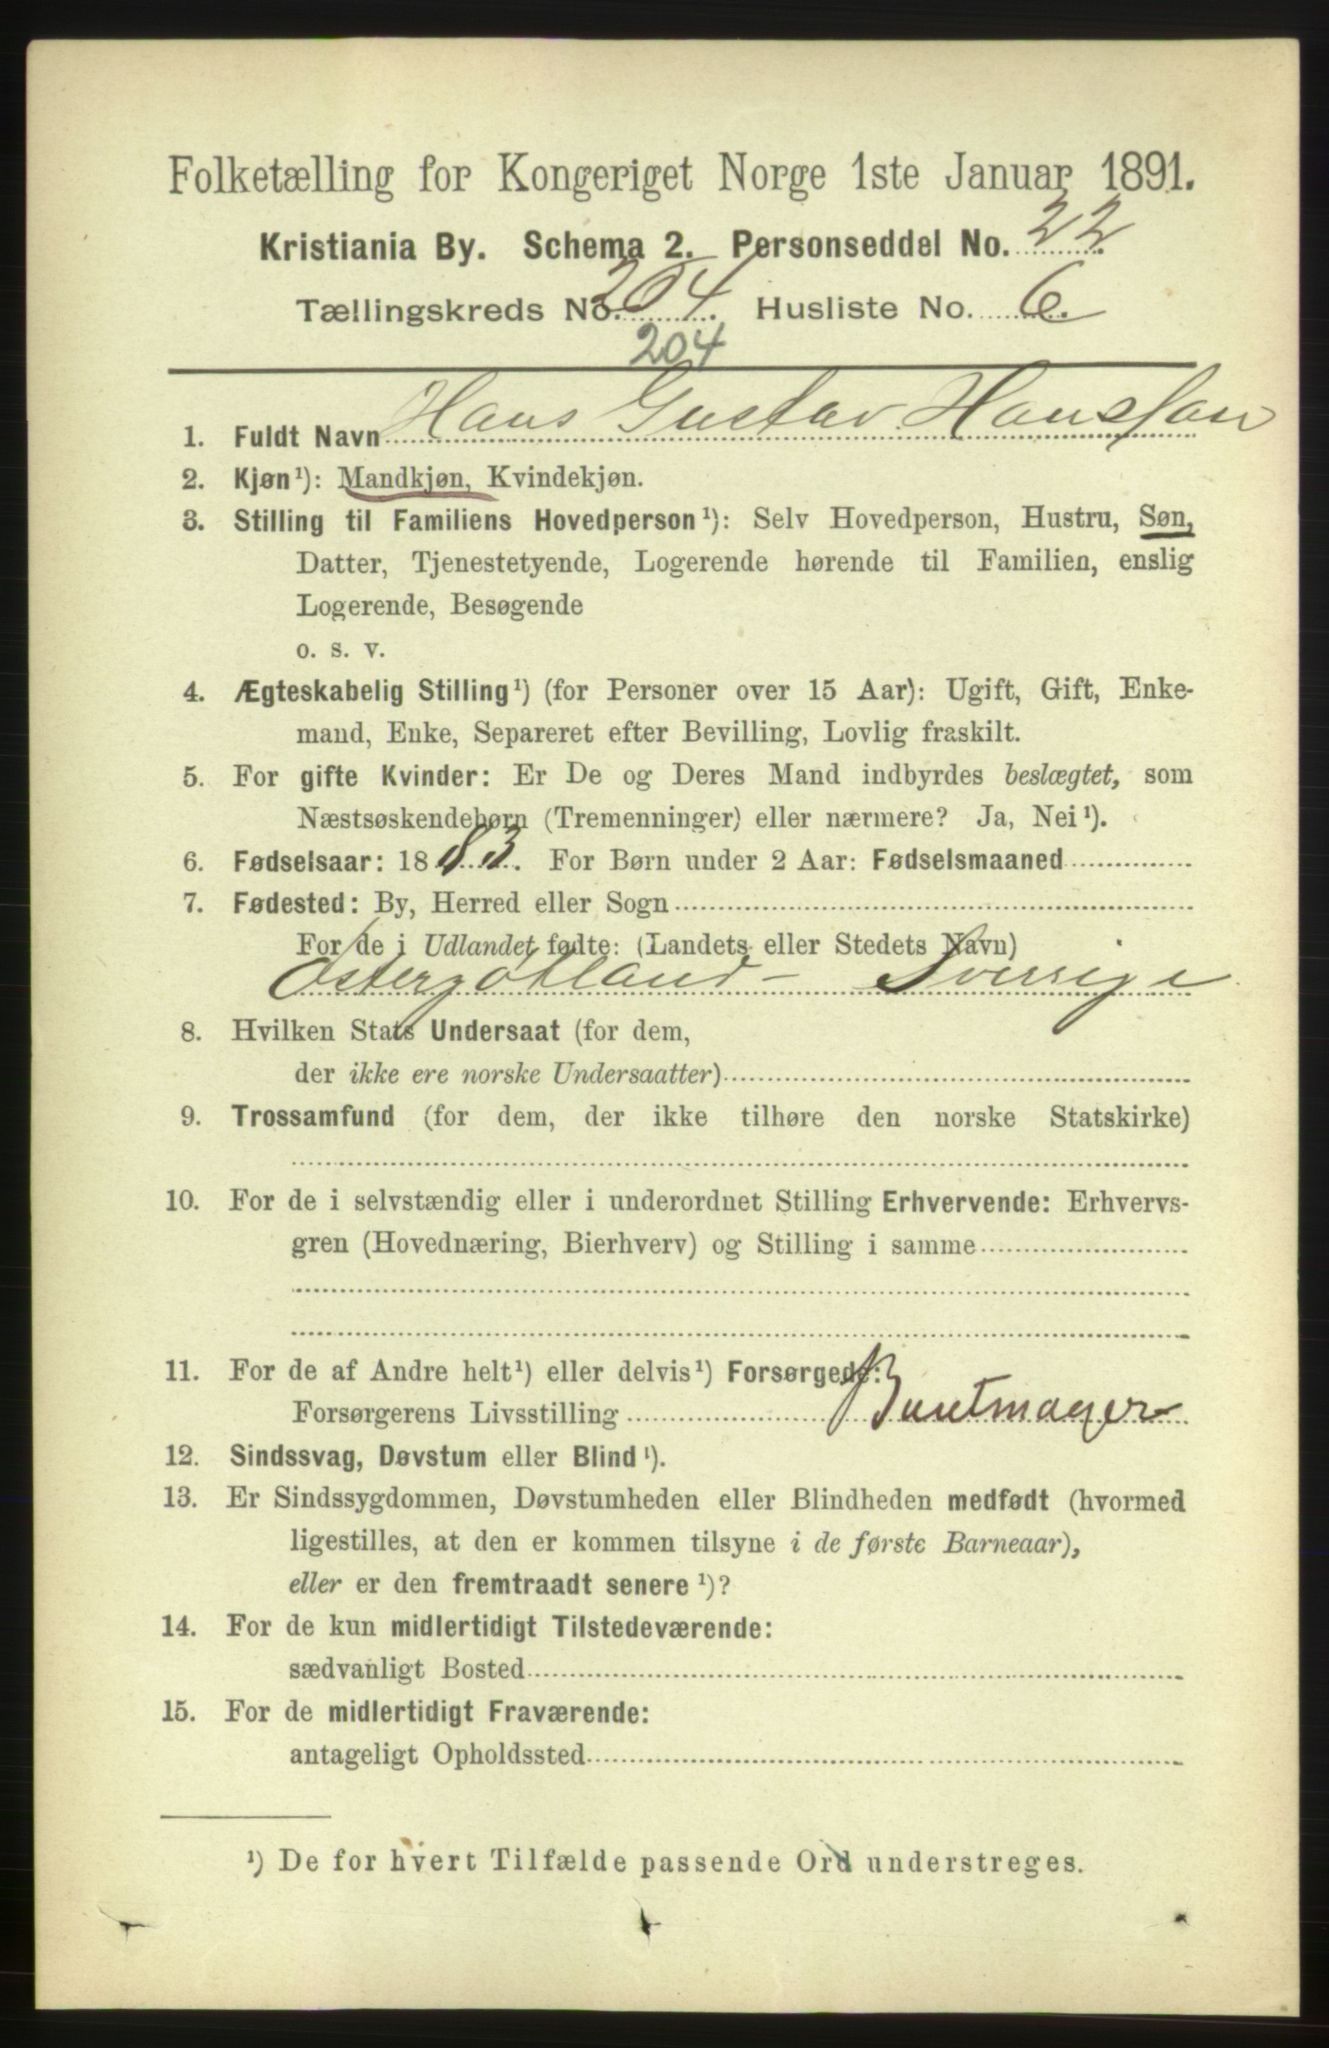 Folketælling for Kongeriget Norge 1ste Januar 1891.
Kristiania By. Schema 2. Personseddel No. 22.
Tællingskreds No. 204. Husliste No. 6.
204
1. Fuldt Navn Hans Gustav Hansson
2. Kjøn¹): Mandkjøn, Kvindekjøn.
3. Stilling til Familiens Hovedperson¹): Selv Hovedperson, Hustru, Søn,
Datter, Tjenestetyende, Logerende hørende til Familien, enslig
Logerende, Besøgende
o. s. v.
4. Ægteskabelig Stilling¹) (for Personer over 15 Aar): Ugift, Gift, Enke-
mand, Enke, Separeret efter Bevilling, Lovlig fraskilt.
5. For gifte Kvinder: Er De og Deres Mand indbyrdes beslægtet, som
Næstsøskendebørn (Tremenninger) eller nærmere? Ja, Nei¹).
6. Fødselsaar: 1883. For Børn under 2 Aar: Fødselsmaaned
7. Fødested: By, Herred eller Sogn
For de i Udlandet fødte: (Landets eller Stedets Navn)
Østergøtland - Sverrige
8. Hvilken Stats Undersaat (for dem,
der ikke ere norske Undersaatter)
9. Trossamfund (for dem, der ikke tilhøre den norske Statskirke)
10. For de i selvstændig eller i underordnet Stilling Erhvervende: Erhvervs-
gren (Hovednæring, Bierhverv) og Stilling i samme
11. For de af Andre helt¹) eller delvis¹) Forsørgede:
Forsørgerens Livsstilling Buntmager
12. Sindssvag, Døvstum eller Blind¹).
13. Er Sindssygdommen, Døvstumheden eller Blindheden medfødt (hvormed
ligestilles, at den er kommen tilsyne i de første Barneaar),
eller er den fremtraadt senere¹)?
14. For de kun midlertidigt Tilstedeværende:
sædvanligt Bosted
15. For de midlertidigt Fraværende:
antageligt Opholdssted
¹) De for hvert Tilfælde passende Ord understreges.